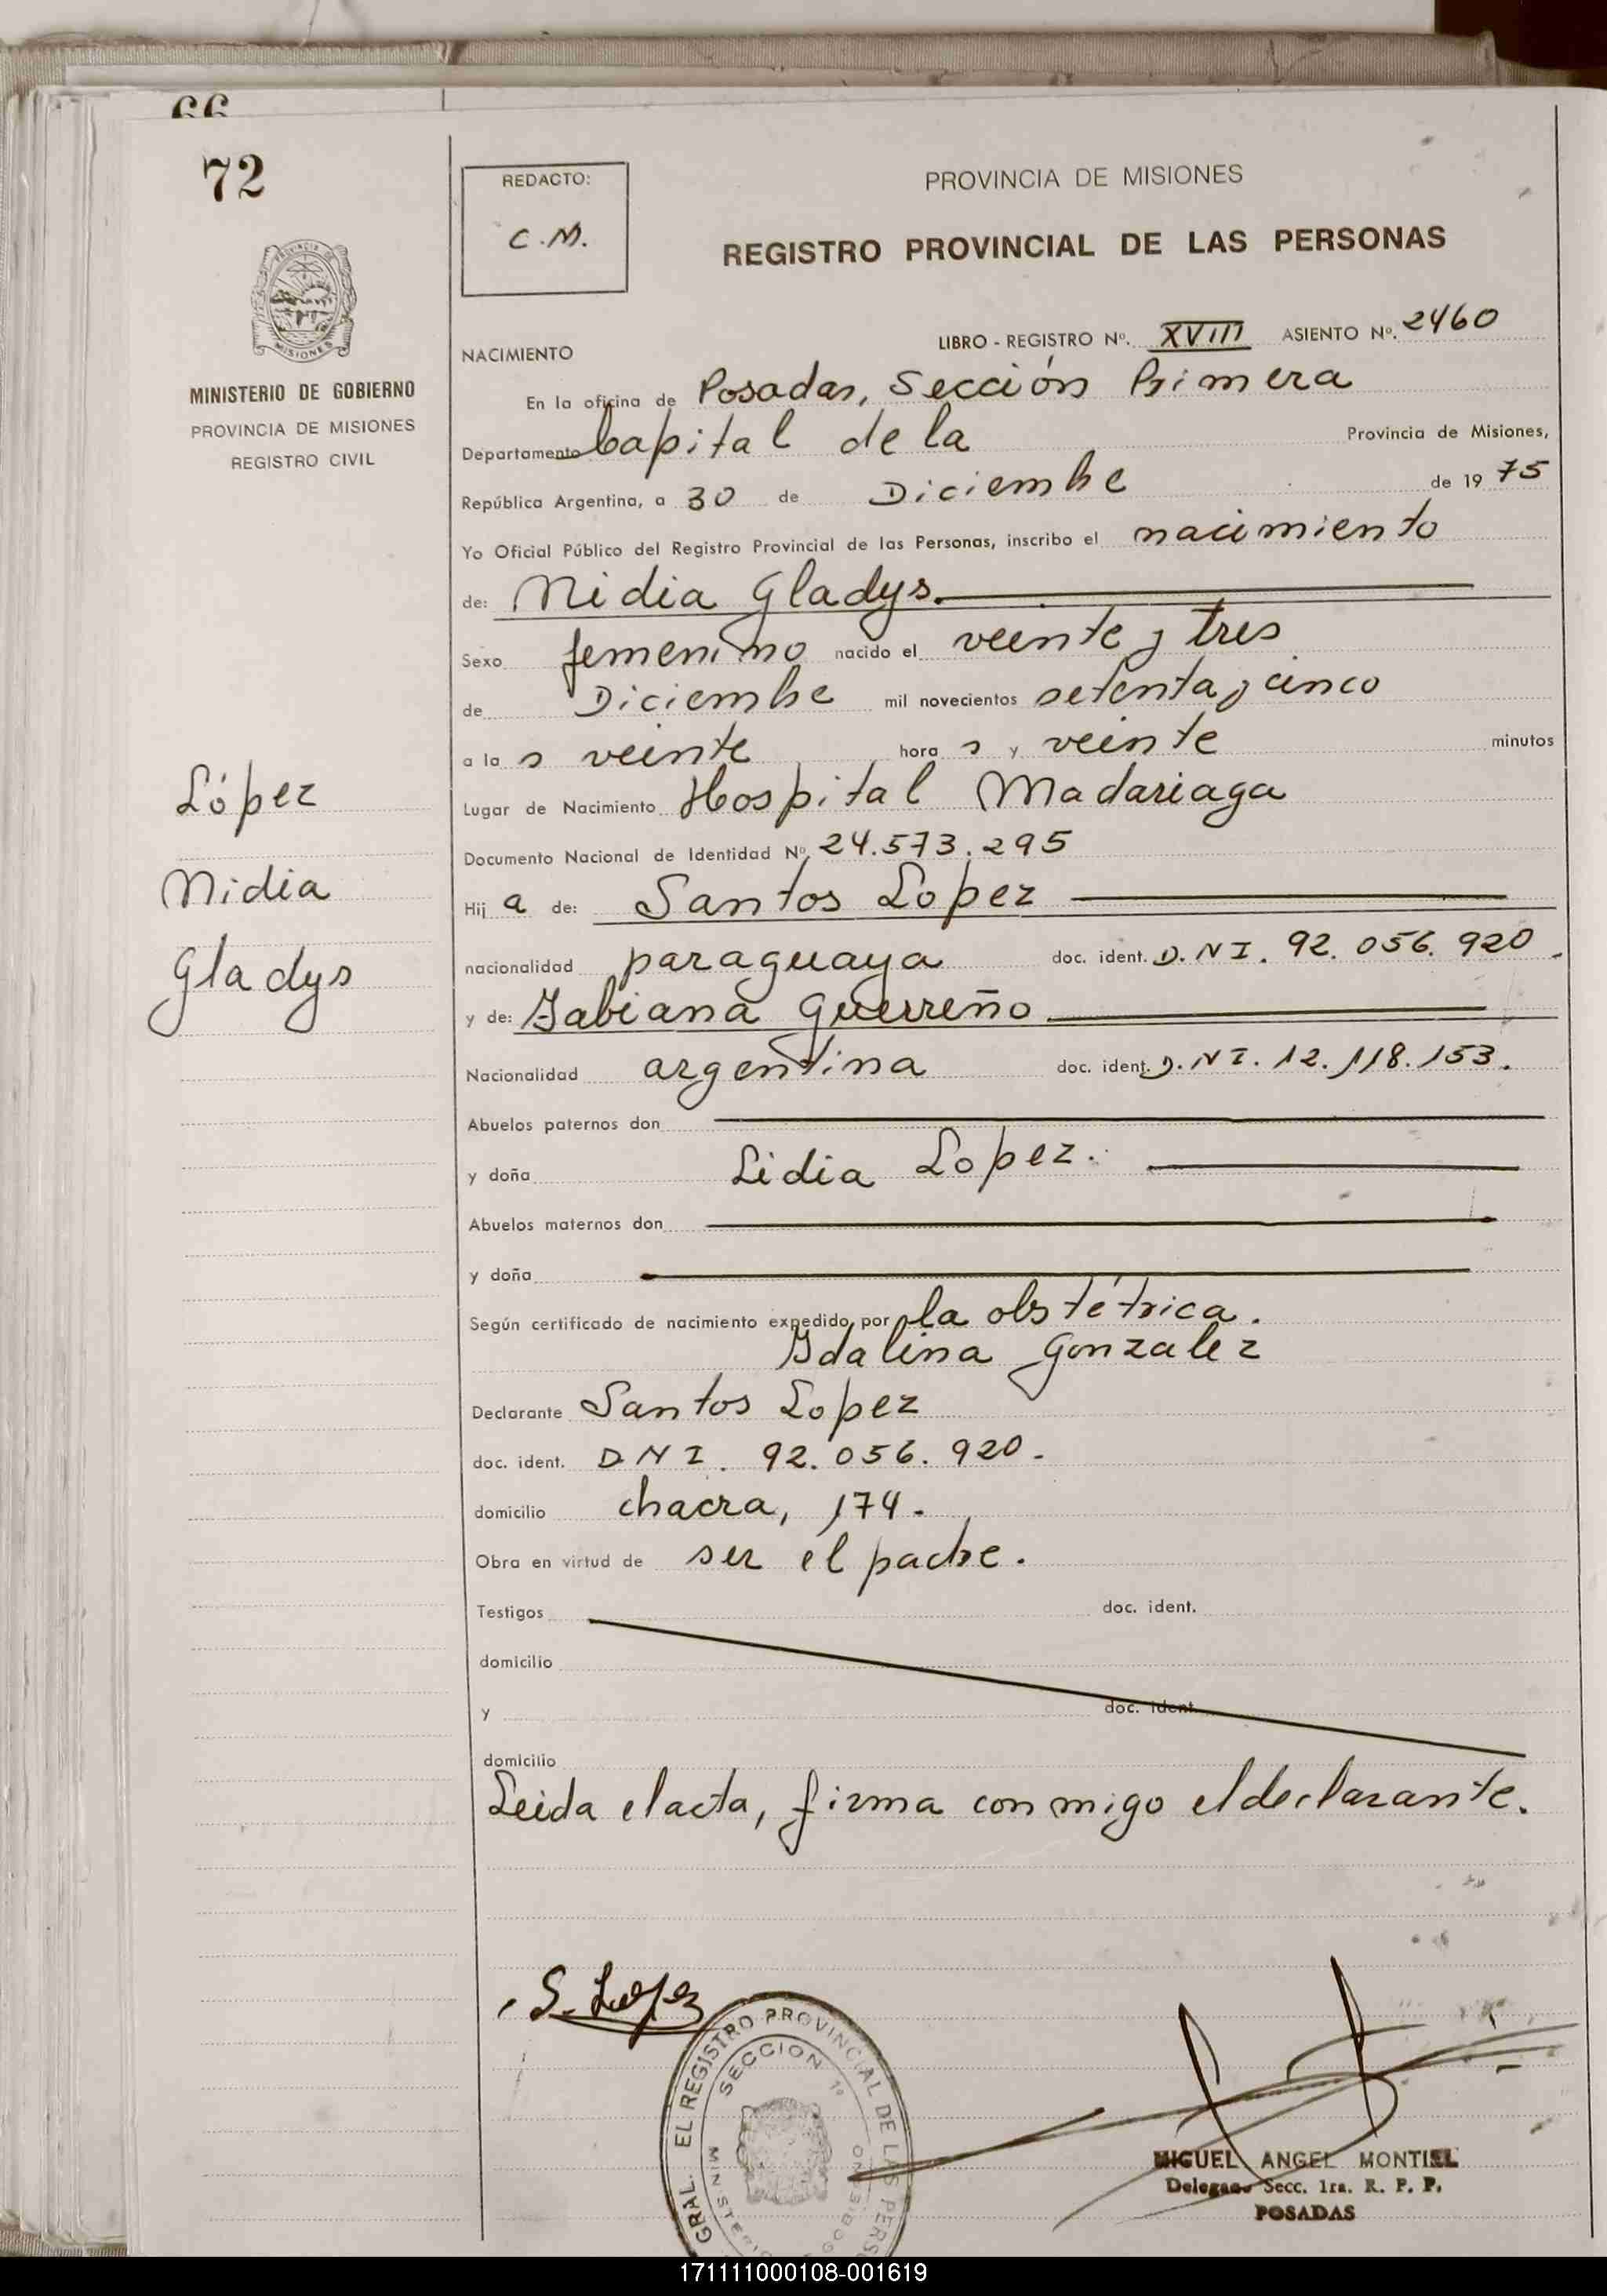 66
72
REDACTO:
C.M.
PROVINCIA DE MISIONES
REGISTRO PROVINCIAL DE LAS PERSONAS
PROVINCIA DE
MISIONES
MINISTERIO DE GOBIERNO
PROVINCIA DE MISIONES
REGISTRO CIVIL
López
Nidia
Gladys
LIBRO - REGISTRO Nº. XVIII ASIENTO Nº. 2460
NACIMIENTO
En la oficina de Posadas, Sección Primera
Departamento Capital de la Provincia de Misiones,
República Argentina, a 30 de Diciembre de 19 75
Yo Oficial Público del Registro Provincial de las Personas, inscribo el nacimiento
de: Nidia Gladys.
Sexo femenino nacido el veinte y tres
de Diciembre mil novecientos setenta y cinco
a la s veinte hora s y veinte minutos
Lugar de Nacimiento Hospital Madariaga
Documento Nacional de Identidad Nº. 24.573.295
Hij a de: Santos Lopez
nacionalidad paraguaya doc. ident. D.NI. 92.056.920.
y de: Fabiana Guerreño
Nacionalidad argentina doc. ident. D.NI. 12.118.153.
Abuelos paternos don
y doña Lidia Lopez.
Abuelos maternos don
y doña
Según certificado de nacimiento expedido por la obstétrica.
Idalina Gonzalez
Declarante Santos Lopez
doc. ident. DNI. 92.056.920.
domicilio chacra, 174.
Obra en virtud de ser el padre.
Testigos doc. ident.
domicilio
y doc. ident.
domicilio
Leida el acta, firma conmigo el declarante.
S. Lopez
GRAL. EL REGISTRO PROVINCIAL DE LAS PERSO
SECCION 1ª
MINISTERIO GOBIERNO
MIGUEL ANGEL MONTIEL
Delegado Secc. 1ra. R. P. P.
POSADAS
171111000108-001619